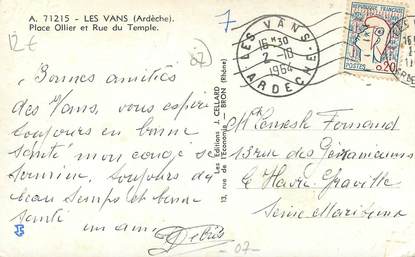 A. 71215 - LES VANS (Ardèche).
Place Ollier et Rue du Temple.
12€
07
7
LES VANS
16H30
2-10
1964
ARDECHE
POSTES
0,20
Bonnes amitiés
des Vans, vous espère
toujours en bonne
santé mon congé se
termine, toujours du
beau temps et bonne
santé un ami
Les Editions J. CELLARD
13, rue de l'Economie, BRON (Rhône)
Fernand
13 rue des Géraniums
Le Havre Graville
Seine Maritime
-07-